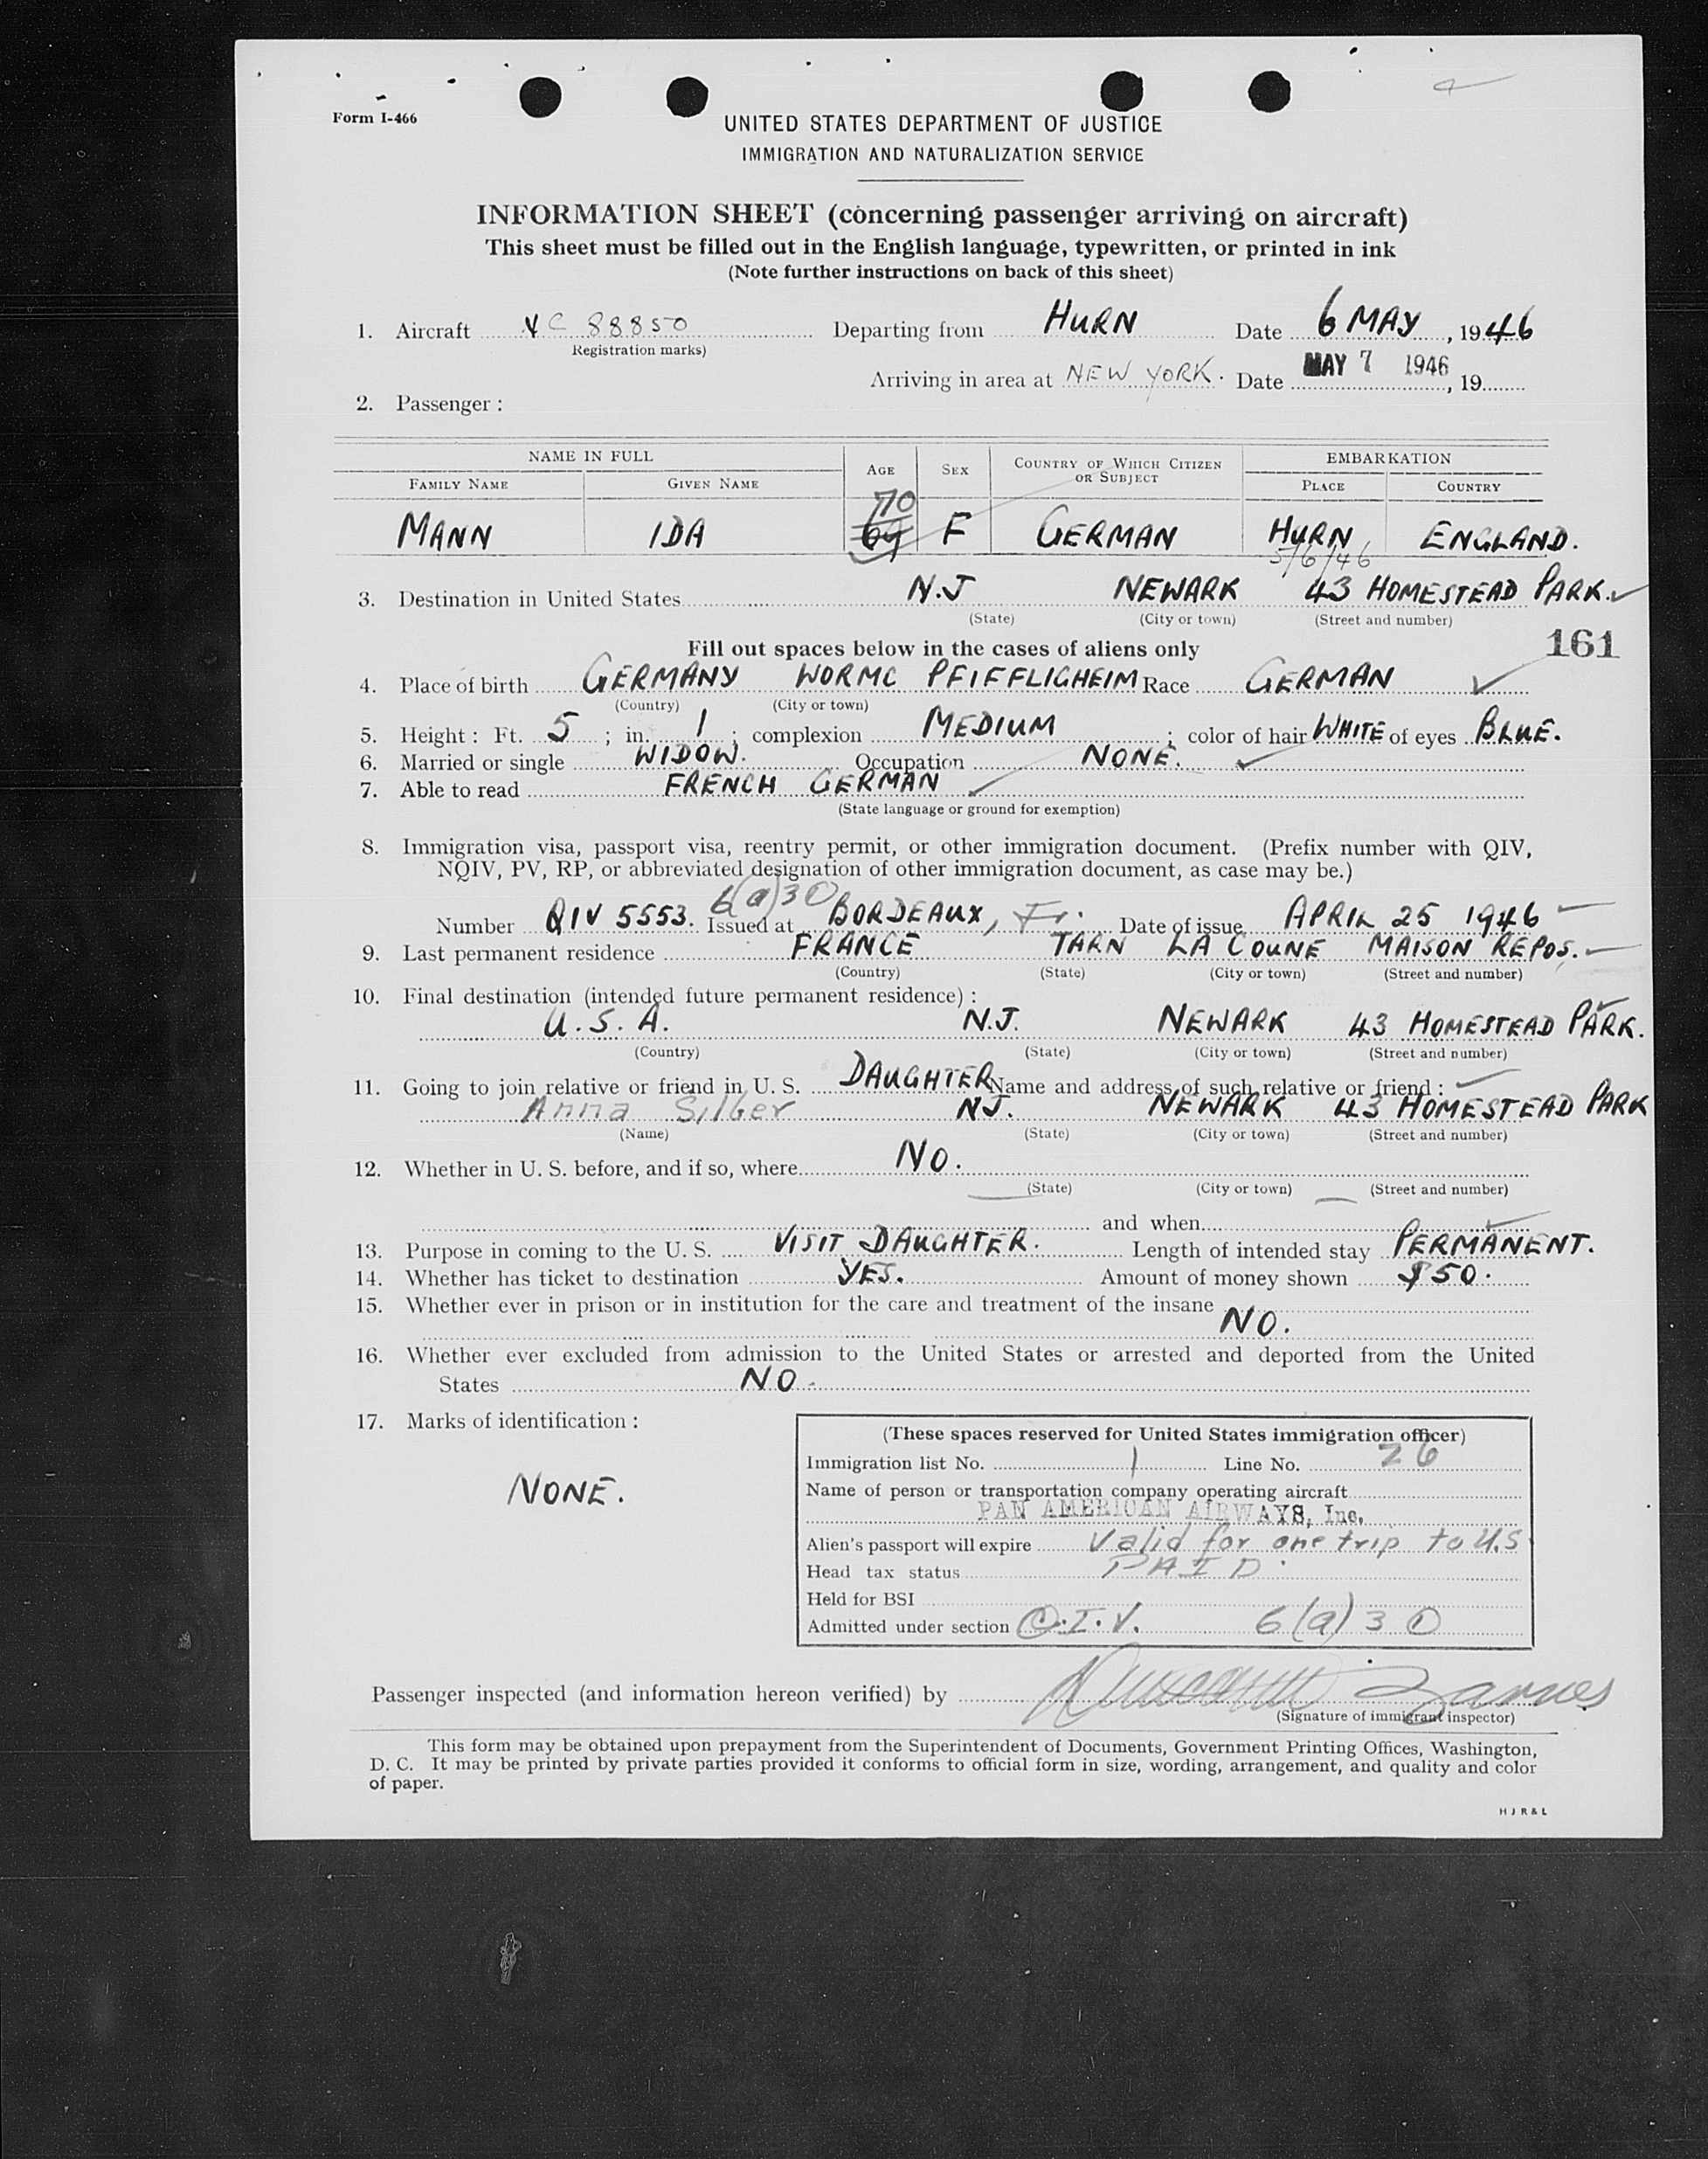 Form I-466
UNITED STATES DEPARTMENT OF JUSTICE
IMMIGRATION AND NATURALIZATION SERVICE
INFORMATION SHEET (concerning passenger arriving on aircraft)
This sheet must be filled out in the English language, typewritten, or printed in ink
(Note further instructions on back of this sheet)
1. Aircraft 88850 Departing from HURN Date 6 MAY, 1946
Registration marks)
Arriving in area at NEW YORK. Date MAY 7 1946, 19
2. Passenger:
NAME IN FULL AGE SEX COUNTRY OF WHICH CITIZEN OR SUBJECT EMBARKATION
FAMILY NAME GIVEN NAME PLACE COUNTRY
70
MANN IDA 69 F GERMAN HURN ENGLAND.
5/6/46
3. Destination in United States N.J NEWARK 43 HOMESTEAD PARK.
(State) (City or town) (Street and number)
Fill out spaces below in the cases of aliens only 161
4. Place of birth GERMANY WORMC PFIFFLIGHEIM Race GERMAN
(Country) (City or town)
5. Height: Ft. 5; in. 1; complexion MEDIUM; color of hair WHITE of eyes BLUE.
6. Married or single WIDOW. Occupation NONE.
7. Able to read FRENCH GERMAN
(State language or ground for exemption)
8. Immigration visa, passport visa, reentry permit, or other immigration document. (Prefix number with QIV,
NQIV, PV, RP, or abbreviated designation of other immigration document, as case may be.)
6(a)30
Number QIV 5553. Issued at BORDEAUX, Fr. Date of issue APRIL 25 1946
9. Last permanent residence FRANCE TARN LA COUNE MAISON REPOS.
(Country) (State) (City or town) (Street and number)
10. Final destination (intended future permanent residence):
U.S.A. N.J. NEWARK 43 HOMESTEAD PARK.
(Country) (State) (City or town) (Street and number)
11. Going to join relative or friend in U. S. DAUGHTER Name and address of such relative or friend:
Anna Silber NJ. NEWARK 43 HOMESTEAD PARK
(Name) (State) (City or town) (Street and number)
12. Whether in U. S. before, and if so, where NO.
(State) (City or town) (Street and number)
and when
13. Purpose in coming to the U. S. VISIT DAUGHTER. Length of intended stay PERMANENT.
14. Whether has ticket to destination YES. Amount of money shown $50.
15. Whether ever in prison or in institution for the care and treatment of the insane
NO.
16. Whether ever excluded from admission to the United States or arrested and deported from the United
States NO.
17. Marks of identification:
NONE.
(These spaces reserved for United States immigration officer)
Immigration list No. 1 Line No. 26
Name of person or transportation company operating aircraft
PAN AMERICAN AIRWAYS, Inc.
Alien's passport will expire Valid for one trip to U.S
Head tax status PAID
Held for BSI
Admitted under section Q.I.V. 6(a)3 0
Passenger inspected (and information hereon verified) by Barnes
(Signature of immigrant inspector)
This form may be obtained upon prepayment from the Superintendent of Documents, Government Printing Offices, Washington,
D. C. It may be printed by private parties provided it conforms to official form in size, wording, arrangement, and quality and color
of paper.
H J R & L